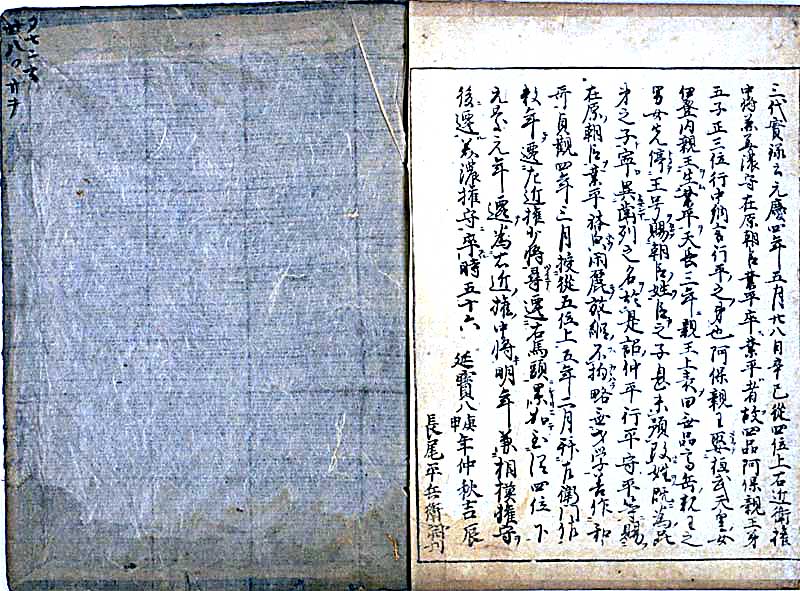 三代實録云元慶四年五月廿八日辛巳從四位上右近衛權
中將兼美濃守在原朝臣業平卒業平者故四品阿保親王第
五子正三位行中納言行平之弟也阿保親王娶桓武天皇女
伊登内親王生業平天長三年親王上表曰無品高岳親王之
男女先停王号賜朝臣姓臣之子息未預改姓既為昆
弟之子寧異歯列之於是詔仲平行平守平等賜
在原朝臣業平體皃閑麗放縦不拘略無才学善作和
哥貞觀四年三月授從五位上五年二月拜左衛門佐
数年遷左近權少將尋遷右馬頭累加至從四位下
元慶元年遷為右近權中將明年兼相模權守
後遷美濃權守卒時五十六 延寳八庚申年仲秋吉辰
長尾平兵衛開刊